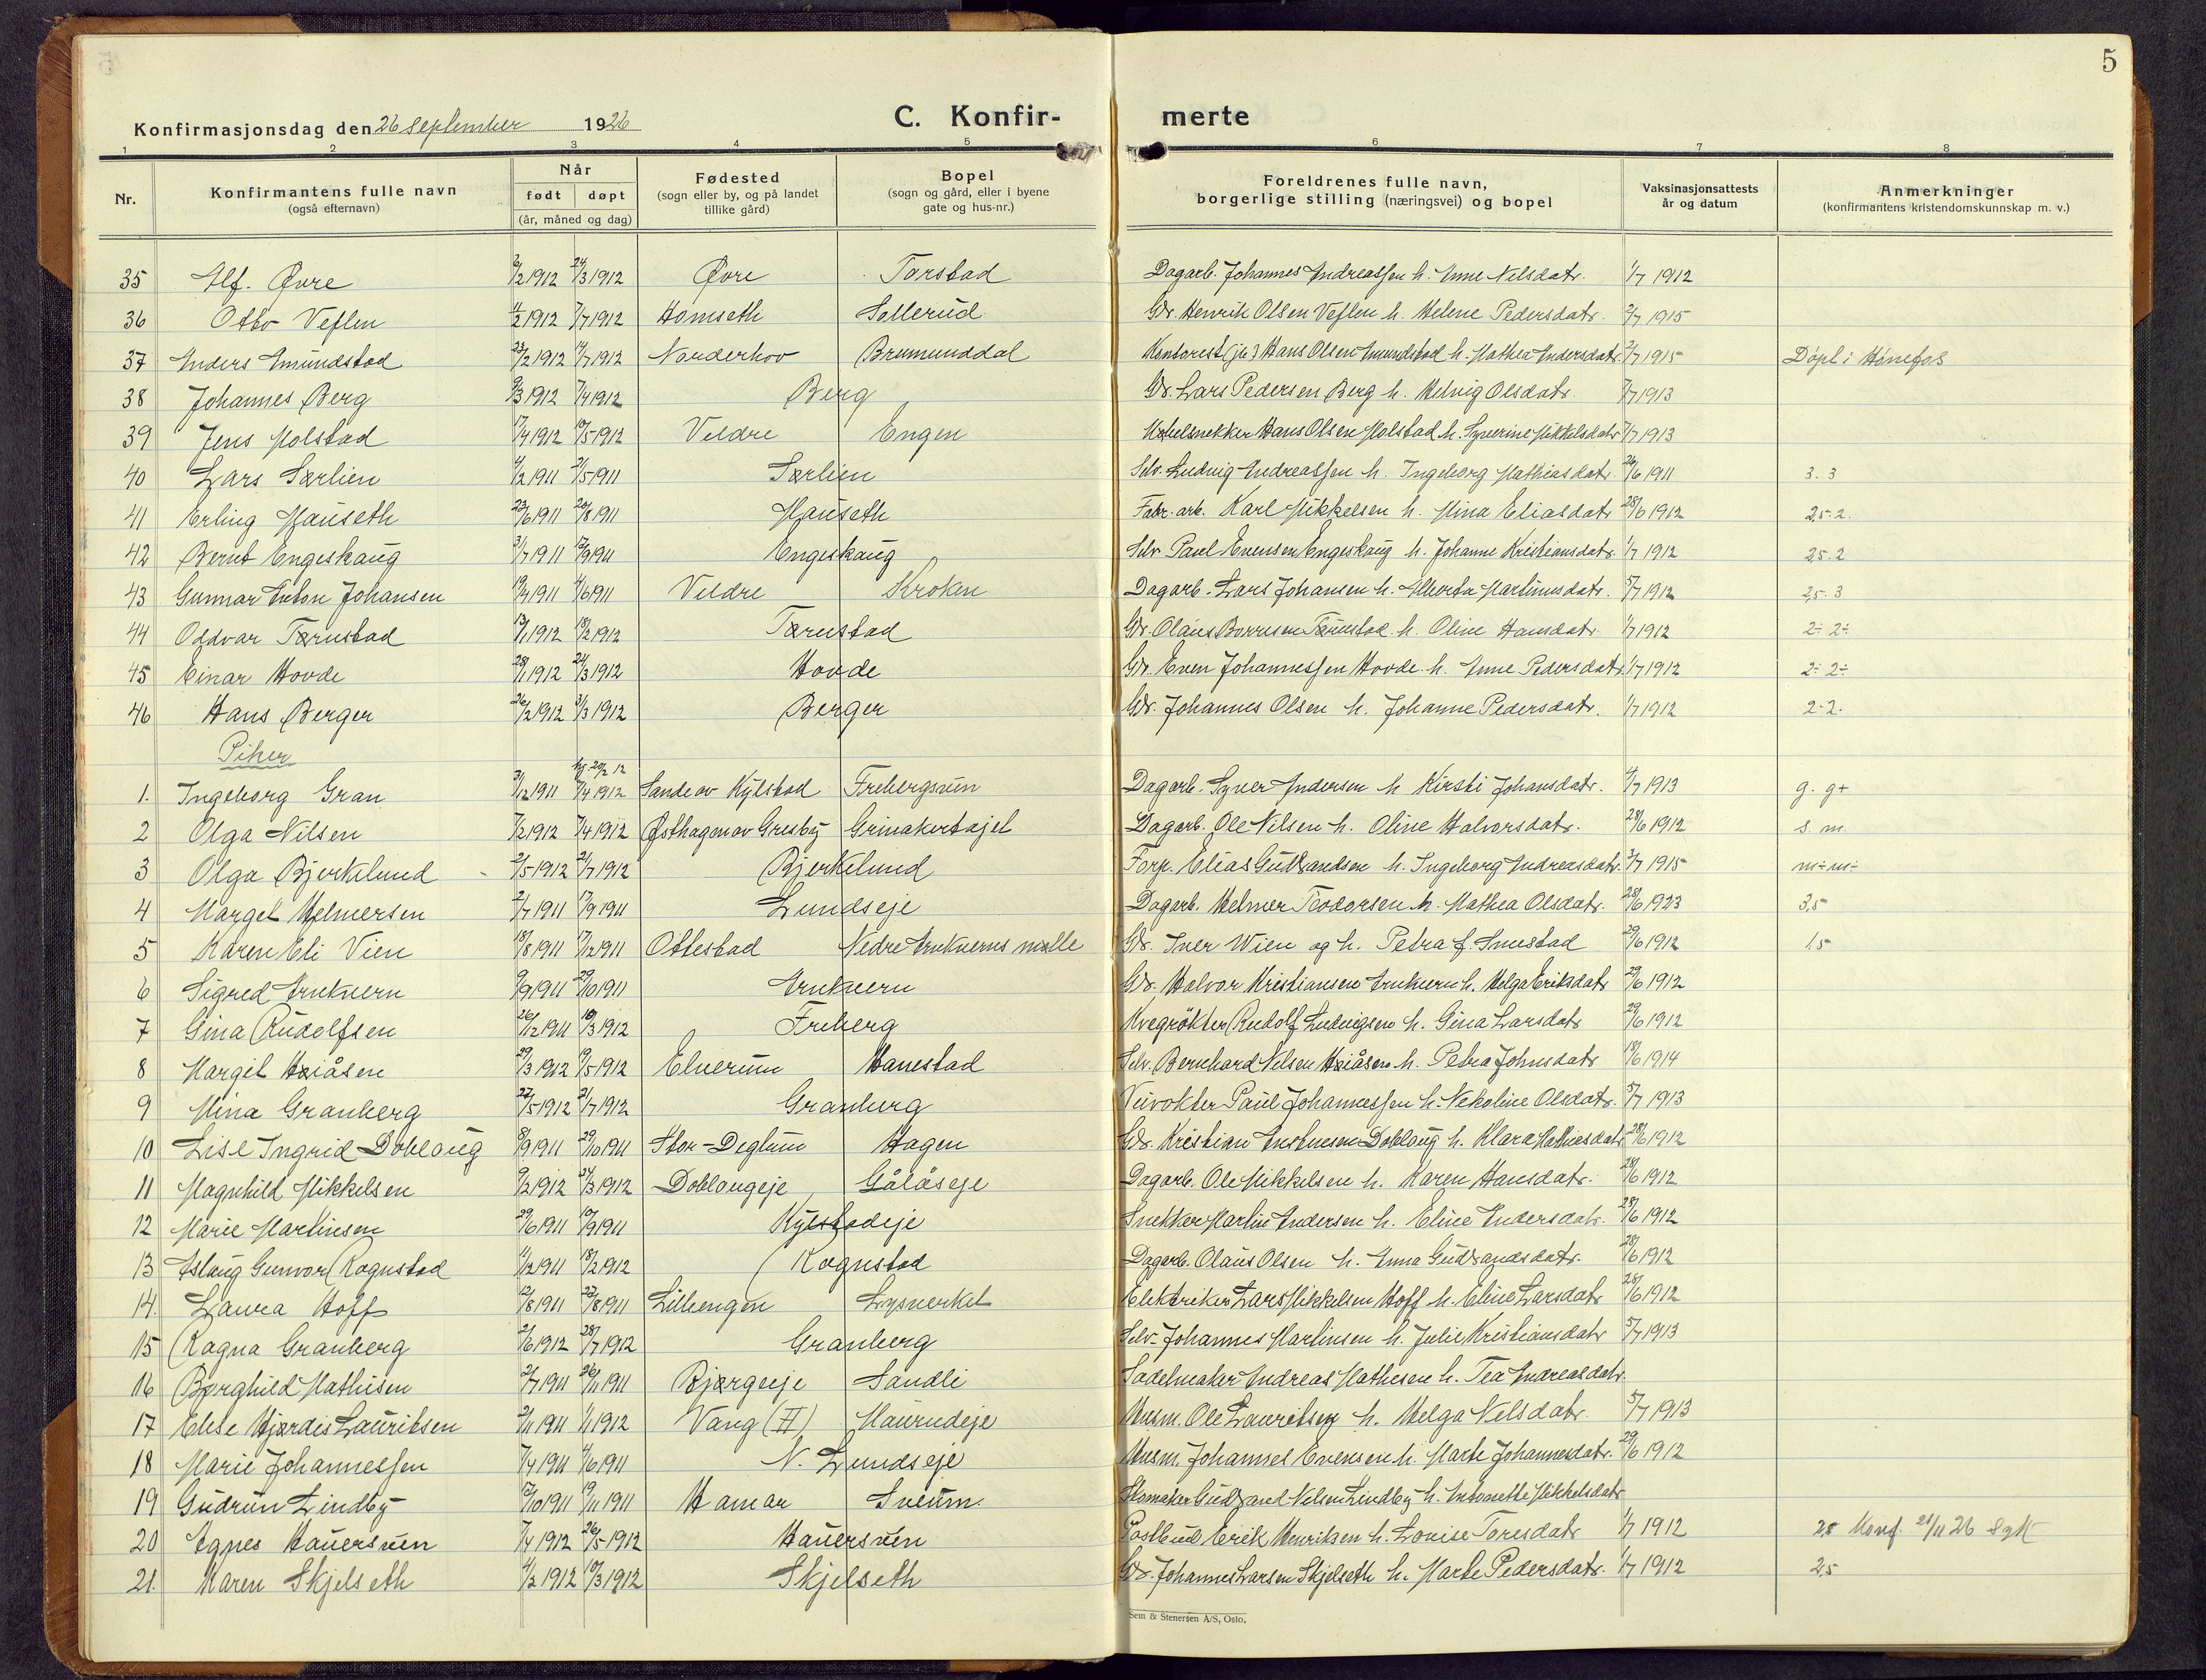 5
Konfirmasjonsdag den 26 september 1926
C. Konfir- merte
1 2 3 4 5 6 7 8
Nr. Konfirmantens fulle navn (også efternavn) Når født døpt (år, måned og dag) Fødested (sogn eller by, og på landet tillike gård) Bopel (sogn og gård, eller i byene gate og hus-nr.) Foreldrenes fulle navn, borgerlige stilling (næringsvei) og bopel Vaksinasjonsattests år og datum Anmerkninger (konfirmantens kristendomskunnskap m. v.)
35 Alf Øvre 6/2 1912 24/3 1912 Øvre Torstad Dagarb. Johannes Andreassen h. Anne Nilsdatr. 1/7 1912
36 Otto Veflen 11/2 1912 7/7 1912 Homseth Sollerud Gdr. Henrik Olsen Veflen h. Helene Pedersdatr. 2/7 1915
37 Anders Amundstad 23/2 1912 14/7 1912 Norderhov Brumunddal Kontorist (jb) Hans Olsen Amundstad h. Mathea Andersdatr. 2/7 1915 Døpt i Hønefos
38 Johannes Berg 9/3 1912 7/4 1912 Berg Gdr. Lars Pedersen Berg h. Helvig Olsdatr. 7/7 1913
39 Jens Molstad 17/4 1912 19/5 1912 Veldre Engen Møbelsnekker Hans Olsen Molstad h. Syverine Mikkelsdatr 7/7 1913
40 Lars Særlien 4/2 1911 21/5 1911 Særlien Selv. Ludvig Andreassen h. Ingeborg Mathiasdatr. 26/6 1911 3. 3
41 Erling Hauseth 23/6 1911 20/8 1911 Hauseth Fabr. arb. Karl Mikkelsen h. Mina Eliasdatr 28/6 1912 2,5-2.
42 Bernt Engeskaug 31/7 1911 12/9 1911 Engeskaug Selv. Paul Evensen Engeskaug h. Johanne Kristiansdatr. 1/7 1912 2,5-2
43 Gunnar Anton Johansen 19/4 1911 4/6 1911 Veldre Kroken Dagarb. Lars Johansen h. Alberta Martinusdatr. 5/7 1912 2,5-3
44 Oddvar Tærnstad 13/1 1912 18/2 1912 Tærnstad Gdr. Olaus Borresen Tærnstad h. Oline Hansdatr. 1/7 1912 2÷ 2÷
45 Einar Hovde 28/1 1912 24/3 1912 Hovde Gdr. Even Johannessen Hovde h. Anne Pedersdatr. 1/7 1912 2÷ 2÷
46 Hans Berger 26/2 1912 31/3 1912 Berger Gdr. Johannes Olsen h. Johanne Pedersdatr. 1/7 1912 2-2.
Piker
hj. 20/2 12
1. Ingeborg Gran 31/12 1911 7/4 1912 Sande av Kylstad Frebergsven Dagarb. Syver Andersen h Kirsti Johansdatr. 4/7 1913 g. g+
2 Olga Nilsen 7/2 1912 7/4 1912 Østhagen av Gresby Grinakertajet Dagarb. Ole Nilsen h. Oline Halvorsdatr. 28/6 1912 s. m.
3 Olga Bjerkelund 2/5 1912 21/7 1912 Bjerkelund Forp. Elias Gudbrandsen h. Ingeborg Andreasdatr. 3/7 1915 m÷ m÷
4 Margit Helmersen 2/7 1911 17/9 1911 Lundseje Dagarb. Helmer Teodorsen h. Mathea Olsdatr. 28/6 1923 3,5
5 Karen Eli Vien 18/8 1911 17/12 1911 Ottestad Nedre Arukverns mølle Gdr. Iver Wien og h. Petra f. Imestad 29/6 1912 1.5
6 Sigred Arnkvern 9/9 1911 29/10 1911 Arnkvern Gdr. Halvor Kristiansen Arnkvern h. Helga Eriksdatr 29/6 1912
7 Gina Rudolfsen 26/12 1911 10/3 1912 Freberg Kvegrøkter Rudolf Ludvigsen h. Gina Larsdatr 29/6 1912
8 Margit Heiåsen 29/3 1912 19/5 1912 Elverum Hanestad Selv. Bernhard Nilsen Heiåsen h. Petra Johnsdatr 18/6 1914
9 Mina Granberg 22/5 1912 21/7 1912 Granberg Veivokter Paul Johannessen h. Nekoline Olsdatr. 5/7 1913
10 Lise Ingrid Dobloug 8/9 1911 29/10 1911 Stor-Deglum Hagen Gdr. Kristian Anstensen Dobloug h. Klara Mathiesdatr 28/6 1912
11 Magnhild Mikkelsen 9/2 1912 24/3 1912 Doblougeje Gålåseje Dagarb. Ole Mikkelsen h. Karen Hansdatr. 28/6 1912
12 Marie Martinsen 29/6 1911 10/9 1911 Kylstadeje Snekker Martin Andersen h. Eline Andersdatr. 28/6 1912
13 Aslaug Gunvor Rognstad 11/12 1911 18/2 1912 Rognstad Dagarb. Olaus Olsen h. Anna Gudbrandsdatr. 28/6 1912
14. Laura Hoff 12/8 1911 27/8 1911 Lillengen Lysverket Elektriker Lars Mikkelsen Hoff h. Eline Larsdatr 28/6 1912
15 Ragna Granberg 2/6 1912 28/7 1912 Granberg Selv. Johannes Martinsen h. Julie Kristiansdatr 5/7 1913
16 Borghild Mathisen 2/7 1911 26/11 1911 Bjørgeeje Sandli Sadelmaker Andreas Mathisen h. Tea Andreasdatr.
17 Elise Hjørdis Lauritsen 2/11 1911 1/1 1912 Vang (H) Maurudeje Husm. Ole Lauritsen h. Helga Nilsdatr. 5/7 1913
18 Marie Johannessen 7/4 1911 4/6 1911 N. Lundseje Husm. Johannes Evensen h. Marte Johannesdatr. 29/6 1912
19 Gudrun Lindby 12/10 1911 19/11 1911 Hamar Sveum Skomaker Gudbrand Nilsen Lindby h. Antonette Mikkelsdatr
20 Agnes Hauersven 7/4 1912 26/5 1912 Hauersven Postbud Erik Henriksen h. Louise Toresdatr 1/7 1912 25 Konf. 21/11 26 Syk
21. Karen Skjelseth 4/2 1912 10/3 1912 Skjelseth Gdr. Johannes Larsen Skjelseth h. Marte Pedersdatr. 1/7 1912 2,5
Sem & Stenersen A/S, Oslo.